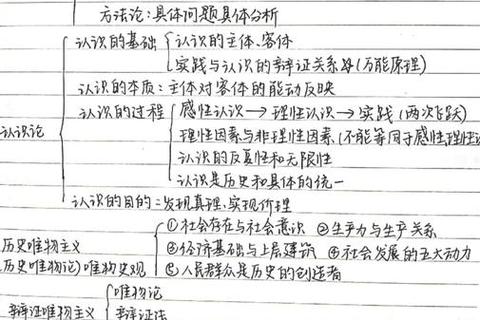 方法论:具体问题具体分析
认识的基础 认识的主体、客体
实践与认识的辩证关系 (万能原理)
认识的本质:主体对客体的能动反映
认识的过程 感性认识→理性认识→实践(两次飞跃)
认识论 理性因素与非理性因素(不能等同于感性理性认
认识的反复性和无限性
认识是历史和具体的统一
认识的目的:发现真理、实现价理
①社会存在与社会意识 ②生产力与生产关系
历史唯物主义 ③经济基础与上层建筑 ④社会发展的五大动力
历史唯物论)唯物史观 ⑤人民群众是历史的创造者
唯物论
辩证唯物主义 辩证法